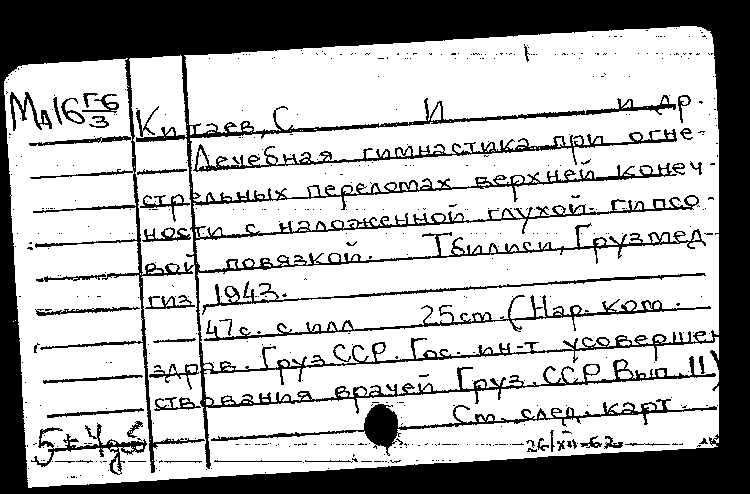 Мд16 Г-6/3
Китаев, С И и др.
Лечебная гимнастика при огне-
стрельных переломах верхней конеч-
ности с наложенной глухой гипсо-
вой повязкой. Тбилиси, Грузмед-
гиз, 1943.
47с. с илл 25см. (Нар. ком.
здрав. Груз ССР. Гос. ин-т усовершен
ствования врачей Груз. ССР. Вып. 11)
См. след. карт.
26/XII-62